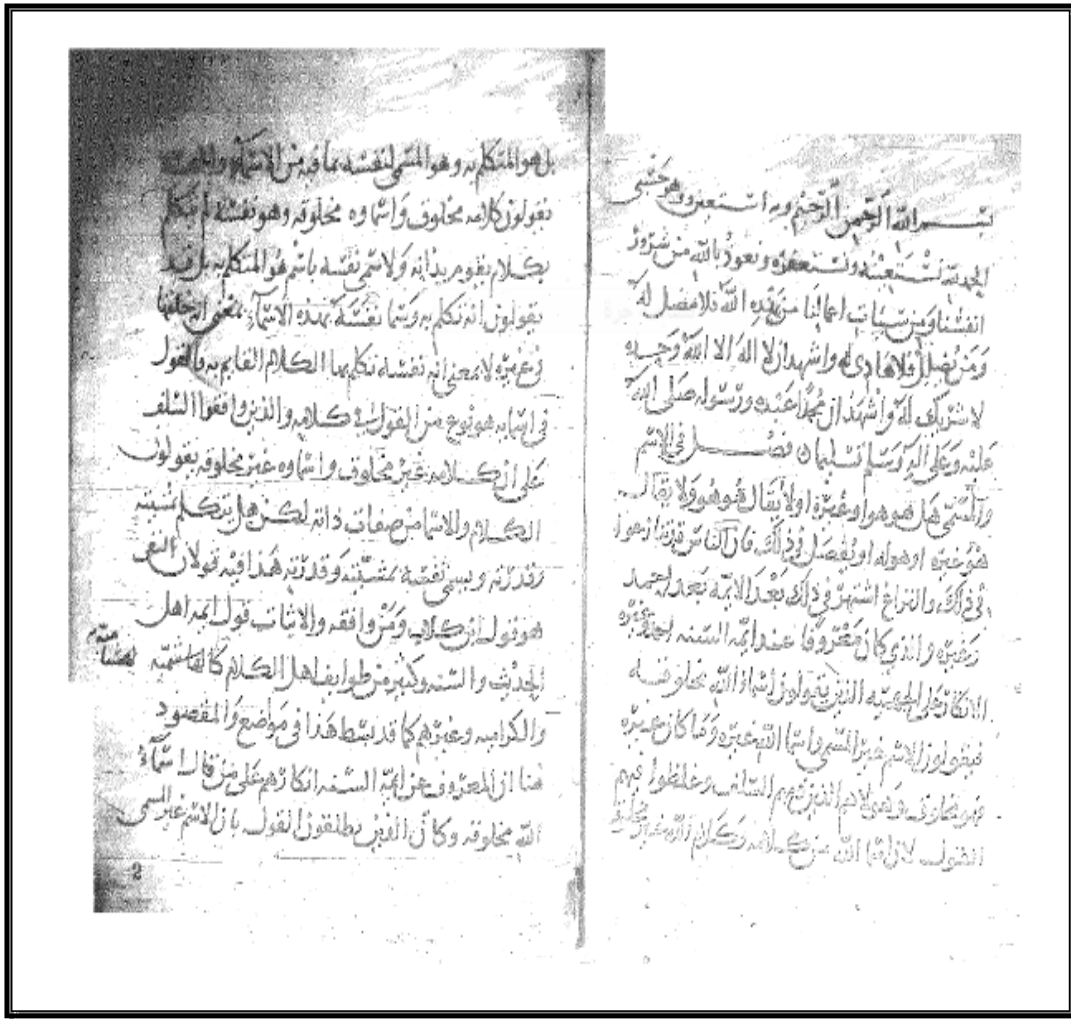 بسم الله الرحمن الرحيم وبه استعين وهو حسبي
الحمد لله نستعينه ونستغفره ونعوذ بالله من شرور
انفسنا ومن سيات اعمالنا من يهده الله فلا مضل له
ومن يضلل فلا هادي له واشهد ان لا اله الا الله وحده
لا شريك له واشهد ان محمدا عبده ورسوله صلى الله
عليه وعلى اله وسلم تسليما فصل في الاسم
والمسمى هل هو هو او غيره او لا يقال هو هو ولا يقال
هو غيره او هو له او يفصل في ذلك فان الناس قد تنازعوا
في ذلك والنزاع اشتهر في ذلك بعد الايمه بعد احمد
وغيره والذي كان معروفا عند ايمه السنه احمد وغيره
الانكار على الجهميه الذين يقولون اسما الله مخلوقه
فيقولون الاسم غير المسمى واسما الله غيره وما كان غيره
فهو مخلوق وهولا هم الذين ذمهم السلف وغلظوا فيهم
القول لان اسما الله من كلامه وكلام الله غير مخلوق
بل هو المتكلم به وهو المسمي لنفسه بما فيه من الاسما والجهميه
يقولون كلامه مخلوق واسماوه مخلوقه وهو نفسه لم يتكلم
بكلام يقوم بذاته ولا سمى نفسه باسم هو المتكلم به بل قد
يقولون انه تكلم به وسما نفسه بهذه الاسماء بمعنى انه خلقها
في غيره لا بمعنى انه نفسه تكلم بها الكلام القايم به فالقول
في اسمايه هو نوع من القول في كلامه والذين وافقوا السلف
على ان كلامه غير مخلوق واسماوه غير مخلوقه يقولون
الكلام والاسما من صفات ذاته لكن هل يتكلم بمشيته
وقدرته ويسمي نفسه بمشيته وقدرته هذا فيه قولان النفي
هو قول ابن كلاب ومن وافقه والاثبات قول ايمه اهل
الحديث والسنه وكثير من طوايف اهل الكلام كالهشاميه
والكراميه وغيرهم كما قد بسط هذا في مواضع والمقصود
هنا ان المعروف عن ايمه السنه انكارهم على من قال اسماء
الله مخلوقه وكان الذين يطلقون القول بان الاسم غير المسمى
2